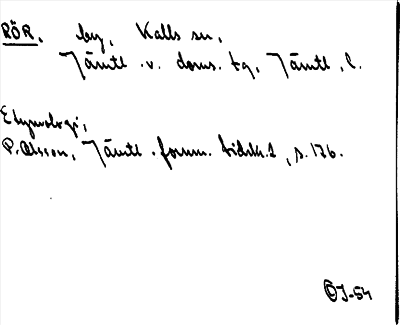 RÖR. by, Kalls sn,
Jämtl. v. doms. tg, Jämtl. l.
Etymologi,
P. Olsson, Jämtl. fornm. tidskr. 1, s. 176.
ÖJ-54